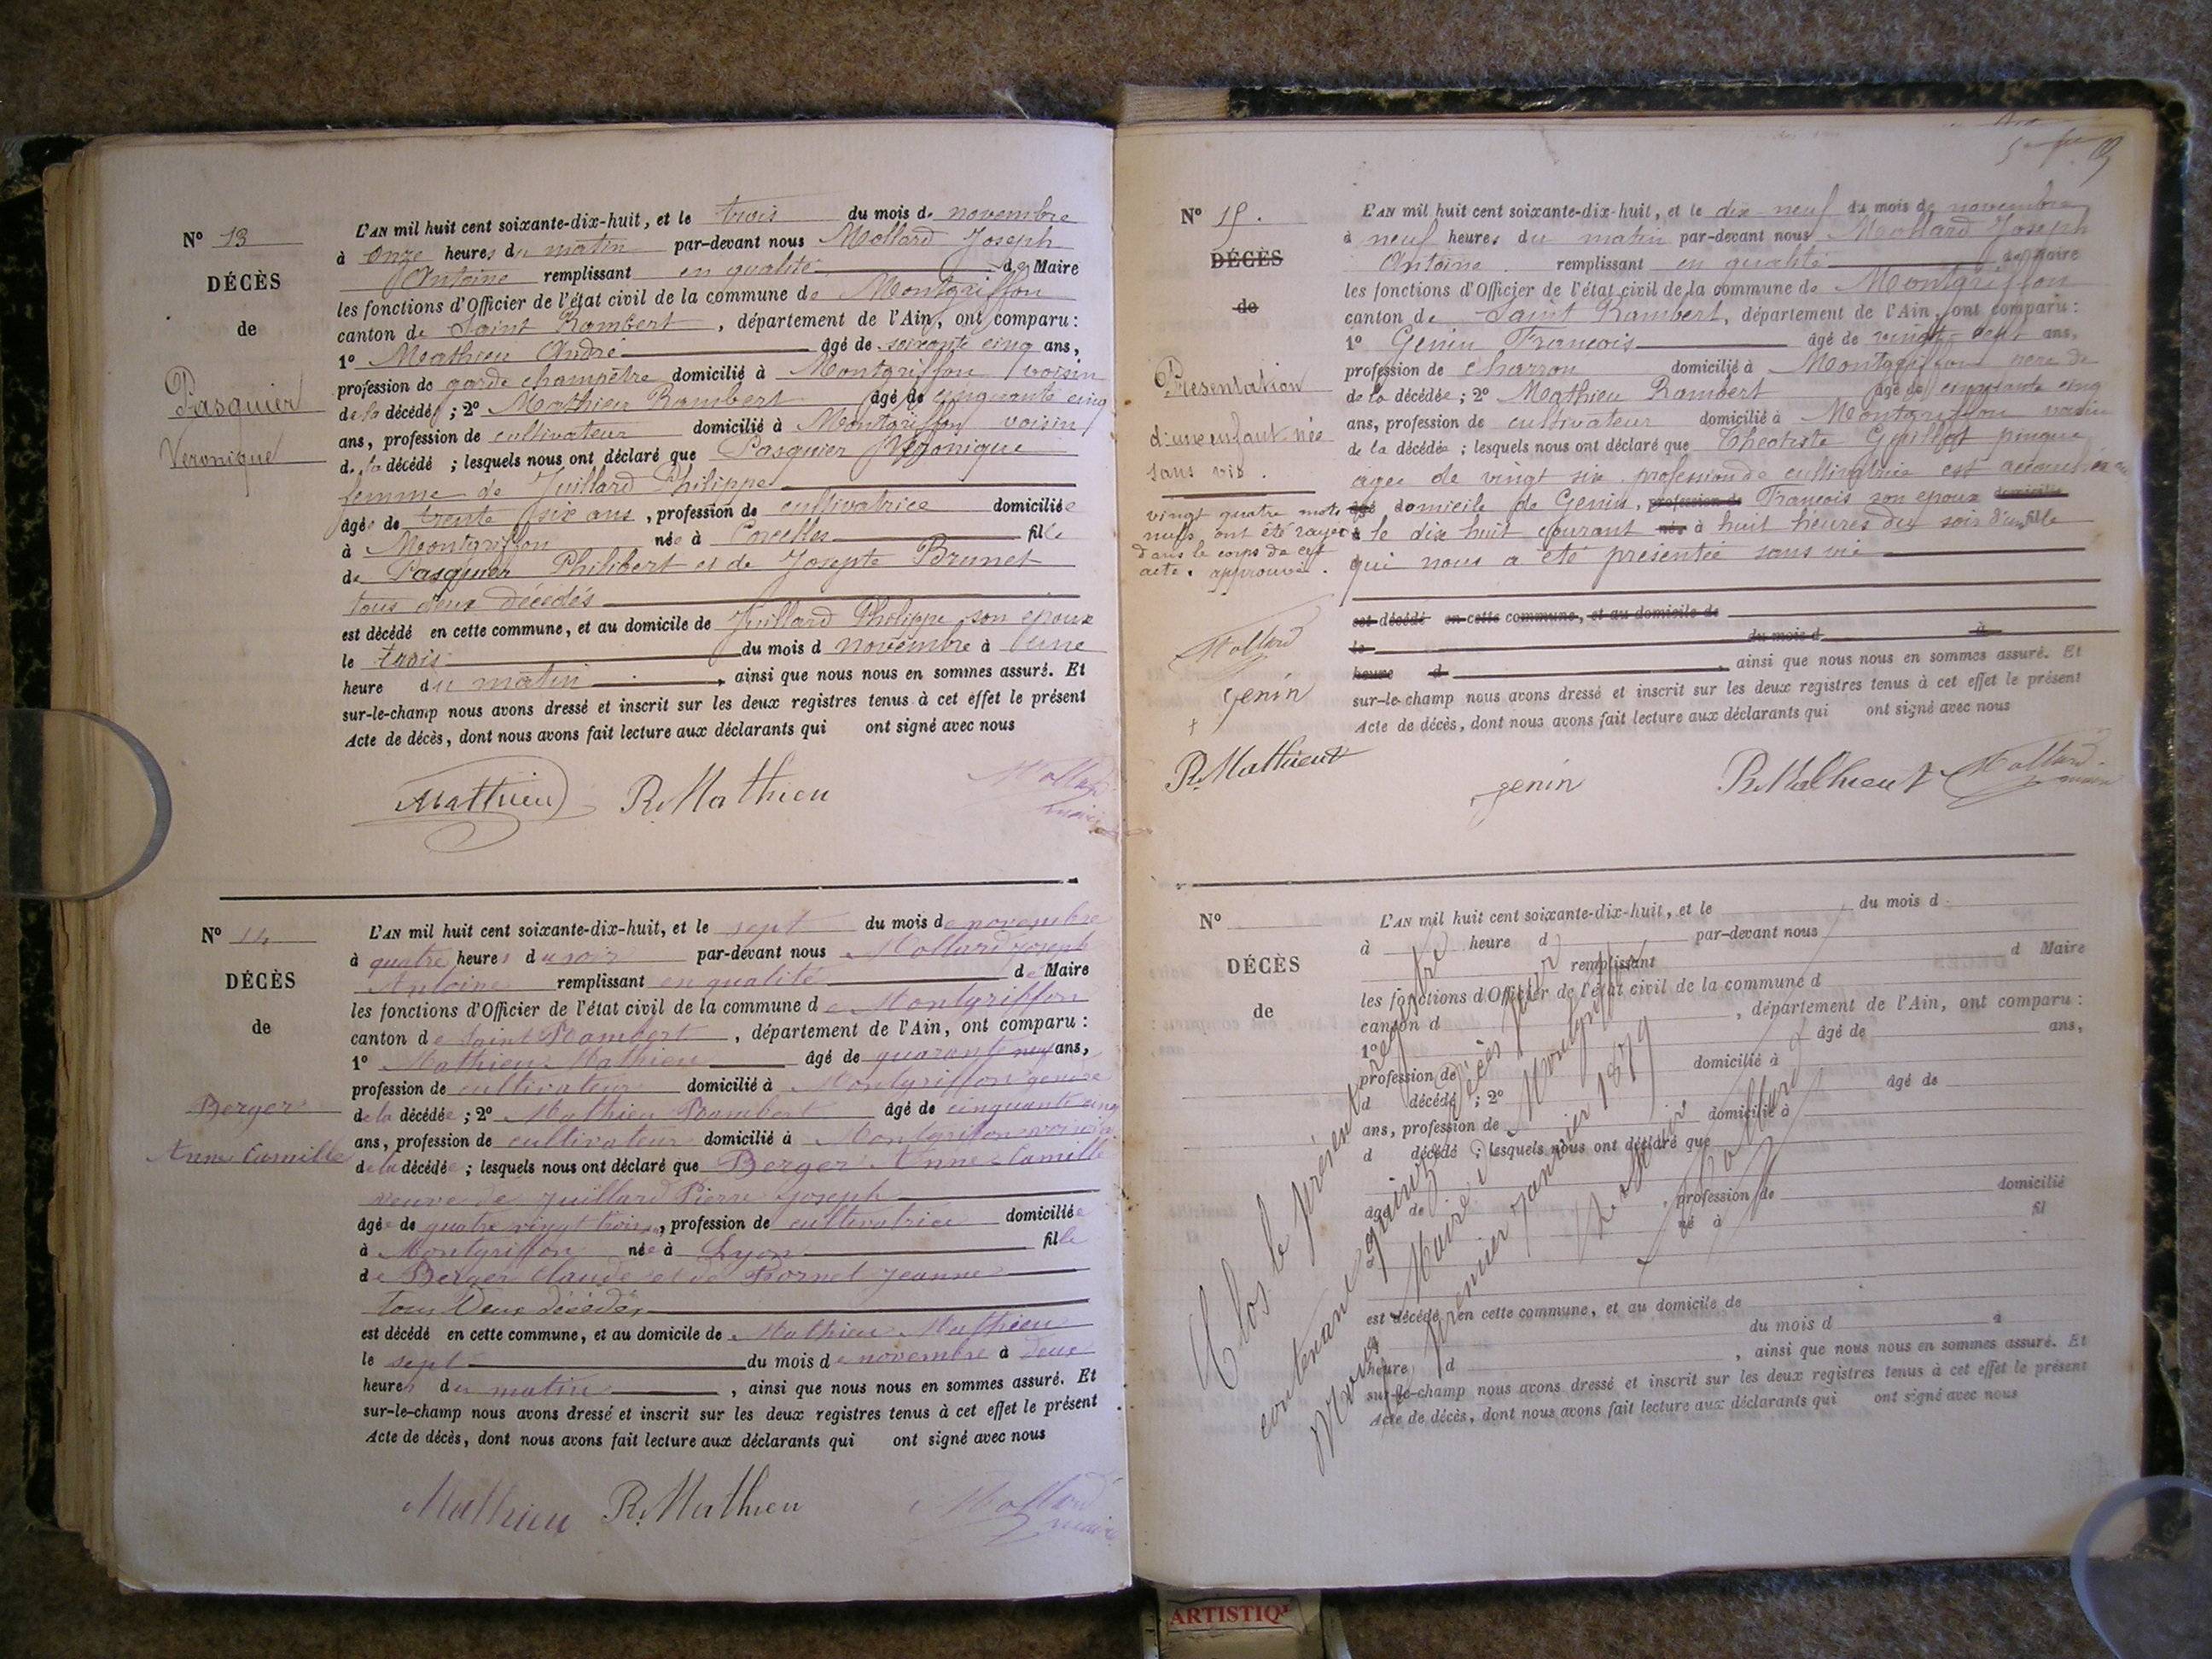 N° 13
DÉCÈS
de
Pasquier
Veronique
L'AN mil huit cent soixante-dix-huit, et le trois du mois de novembre
à onze heures du matin par-devant nous Mollard Joseph
Antoine remplissant en qualité de Maire
les fonctions d'Officier de l'état civil de la commune de Montgriffon
canton de Saint Rambert, département de l'Ain, ont comparu :
1° Mathieu André âgé de soixante cinq ans,
profession de garde champêtre domicilié à Montgriffon voisin
de la décédée ; 2° Mathieu Rambert âgé de cinquante cinq
ans, profession de cultivateur domicilié à Montgriffon voisin
de la décédé ; lesquels nous ont déclaré que Pasquier Véronique
femme de Juillard Philippe
âgée de trente six ans, profession de cultivatrice domiciliée
à Montgriffon née à Corcelles fille
de Pasquier Philibert et de Josepte Brunet
tous deux décédés
est décédé en cette commune, et au domicile de Juillard Philippe son époux
le trois du mois d novembre à une
heure du matin, ainsi que nous nous en sommes assuré. Et
sur-le-champ nous avons dressé et inscrit sur les deux registres tenus à cet effet le présent
Acte de décès, dont nous avons fait lecture aux déclarants qui ont signé avec nous
Mathieu R. Mathieu Mollard
maire
N° 14
DÉCÈS
de
Berger
Anne Camille
L'AN mil huit cent soixante-dix-huit, et le sept du mois de novembre
à quatre heures du soir par-devant nous Mollard Joseph
Antoine remplissant en qualité de Maire
les fonctions d'Officier de l'état civil de la commune de Montgriffon
canton de Saint Rambert, département de l'Ain, ont comparu :
1° Mathieu Mathieu âgé de quarante neuf ans,
profession de cultivateur domicilié à Montgriffon gendre
de la décédée ; 2° Mathieu Rambert âgé de cinquante cinq
ans, profession de cultivateur domicilié à Montgriffon voisin
de la décédée ; lesquels nous ont déclaré que Berger Anne Camille
veuve de Juillard Pierre Joseph
âgée de quatre vingt trois, profession de cultivatrice domiciliée
à Montgriffon née à Lyon fille
de Berger Claude et de Jeanne
tous Deux décédés
est décédé en cette commune, et au domicile de Mathieu Mathieu
le sept du mois de novembre à deux
heures du matin, ainsi que nous nous en sommes assuré. Et
sur-le-champ nous avons dressé et inscrit sur les deux registres tenus à cet effet le présent
Acte de décès, dont nous avons fait lecture aux déclarants qui ont signé avec nous
Mathieu R. Mathieu Mollard
maire
N° 15.
DÉCÈS
de
Présentation
d'une enfant née
sans vie.
vingt quatre mots
nuls ont été rayés
dans le corps de cet
acte. approuvé.
Mollard
genin
R. Mathieu
L'AN mil huit cent soixante-dix-huit, et le dix neuf du mois de novembre
à neuf heures du matin par-devant nous Mollard Joseph
Antoine. remplissant en qualité de Maire
les fonctions d'Officier de l'état civil de la commune de Montgriffon
canton de Saint Rambert, département de l'Ain, ont comparu :
1° Genin François âgé de vingt ans,
profession de charron domicilié à Montgriffon père de
de la décédée ; 2° Mathieu Rambert âgé de cinquante cinq
ans, profession de cultivateur domicilié à Montgriffon voisin
de la décédée ; lesquels nous ont déclaré que Théotiste
agée de vingt six. profession de cultivatrice est accouchée
âgé domicile de Genin, profession de François son epoux domicilié
à le dix huit courant née à huit heures du soir d'une fille
qui nous a été présentée sans vie
est décédé en cette commune, et au domicile de
le du mois d à
heure d, ainsi que nous nous en sommes assuré. Et
sur-le-champ nous avons dressé et inscrit sur les deux registres tenus à cet effet le présent
Acte de décès, dont nous avons fait lecture aux déclarants qui ont signé avec nous
genin R. Mathieu Mollard
maire
N°
DÉCÈS
de
L'AN mil huit cent soixante-dix-huit, et le du mois d
à heure d par-devant nous
remplissant d Maire
les fonctions d'Officier de l'état civil de la commune d
canton d, département de l'Ain, ont comparu :
1° âgé de ans,
profession de domicilié à
d décédé ; 2° âgé de
ans, profession de domicilié à
d décédé ; lesquels nous ont déclaré que
âgé de, profession de domicilié
né à fil
est décédé en cette commune, et au domicile de
du mois d à
heure d, ainsi que nous nous en sommes assuré. Et
sur-le-champ nous avons dressé et inscrit sur les deux registres tenus à cet effet le présent
Acte de décès, dont nous avons fait lecture aux déclarants qui ont signé avec nous
Clos le présent registre
contenant quinze décès par
Nous Maire de Montgriffon
le premier Janvier 1879
Le Maire
Mollard
ARTISTIQ